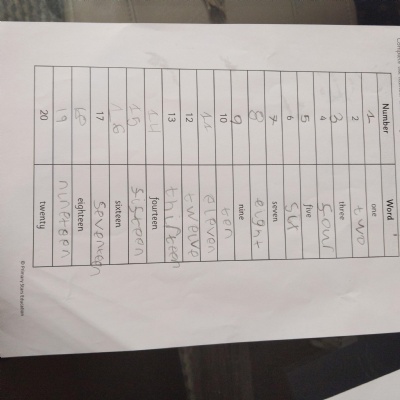 Number Word
1 one
2 two
3 three
4 four
5 five
6 six
7 seven
8 eight
9 nine
10 ten
11 eleven
12 twewe
13 thirteen
14 fourteen
15 sisteen
16 sixteen
17 seventeen
18 eighteen
19 nineteen
20 twenty
© Primary Stars Education